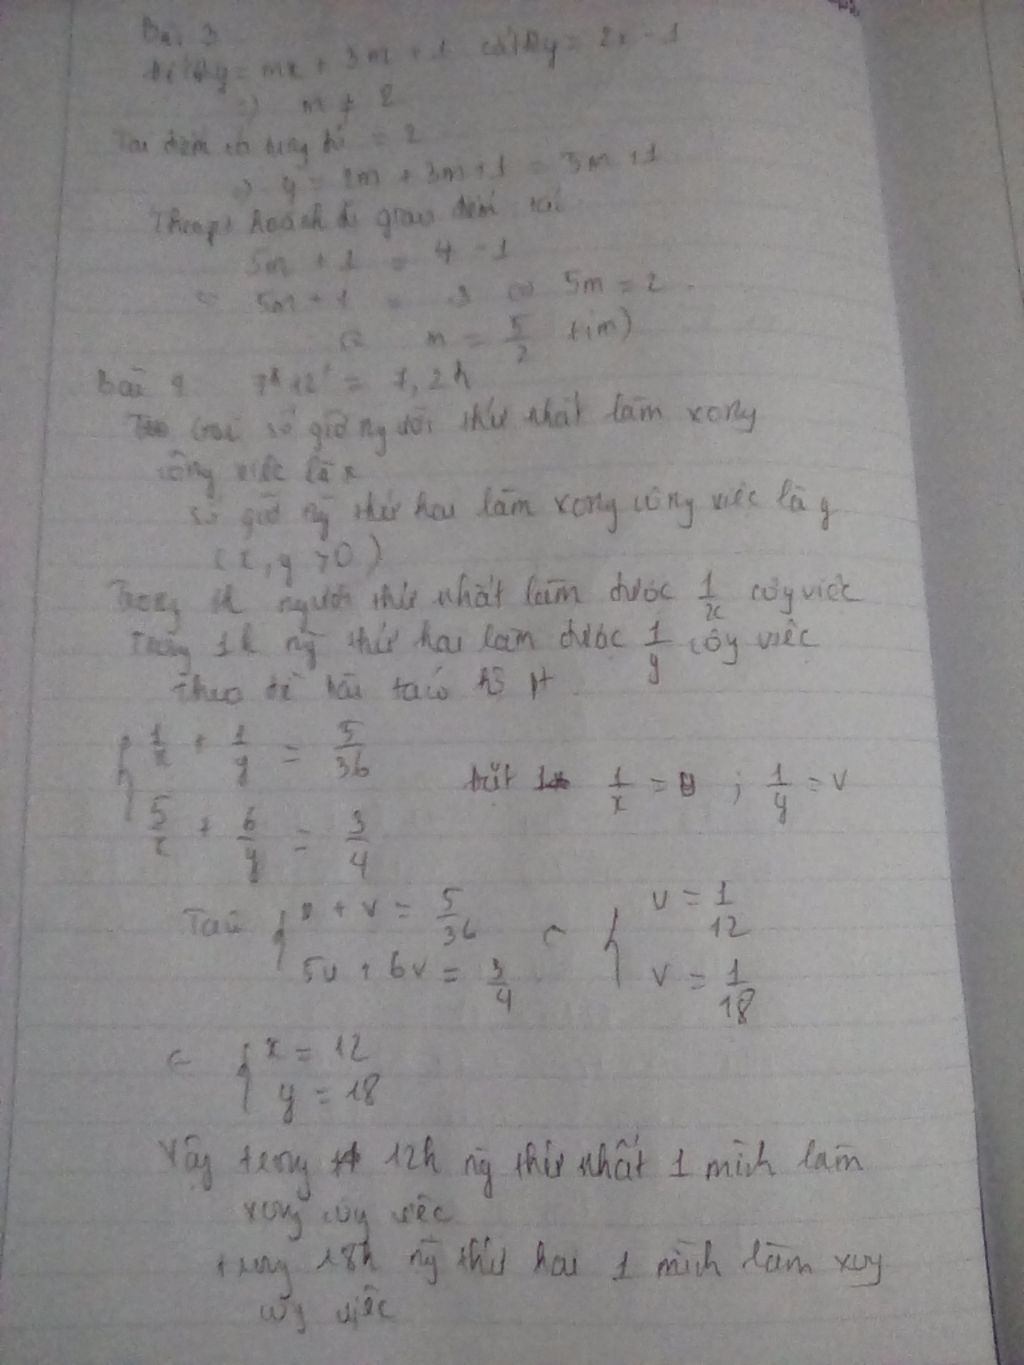 Bài 3
Để (d) y = mx + 3m + 1 cắt (d) y = 2x - 1
=> m ≠ 2
Tại điểm có = 2
=> y = 2m + 3m + 1 = 5m + 1
hoành độ giao điểm
5m + 1 = 4 - 1
5m + 1 = 3 <=> 5m = 2
m = 5/2 (tm)
Bài 4 7h12' = 7,2h
Gọi số giờ người thứ nhất làm xong
công việc là x
số giờ ng thứ hai làm xong công việc là y
(x, y > 0)
Trong 1h người thứ nhất làm được 1/x côy việc
Trong 1h ng thứ hai làm được 1/y côy việc
theo đề bài ta có hệ pt
{ 1/x + 1/y = 5/36
5/x + 6/y = 3/4 đặt 1/x = u ; 1/y = v
Ta có { u + v = 5/36
5u + 6v = 3/4 { u = 1/12
v = 1/18
{ x = 12
y = 18
Vậy trong 12h ng thứ nhất 1 mình làm
xong côy việc
trong 18h ng thứ hai 1 mình làm xoy
côy việc